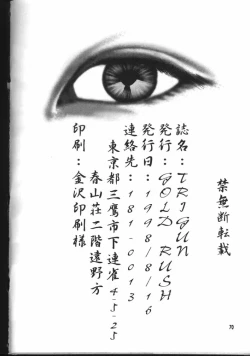 禁無断転載
誌名：TRIGUN
発行：GOLD RUSH
発行日：1998/8/16
連絡先：181-0013
東京都三鷹市下連雀4-5-25
春山荘二階遠野方
印刷：金沢印刷様
70